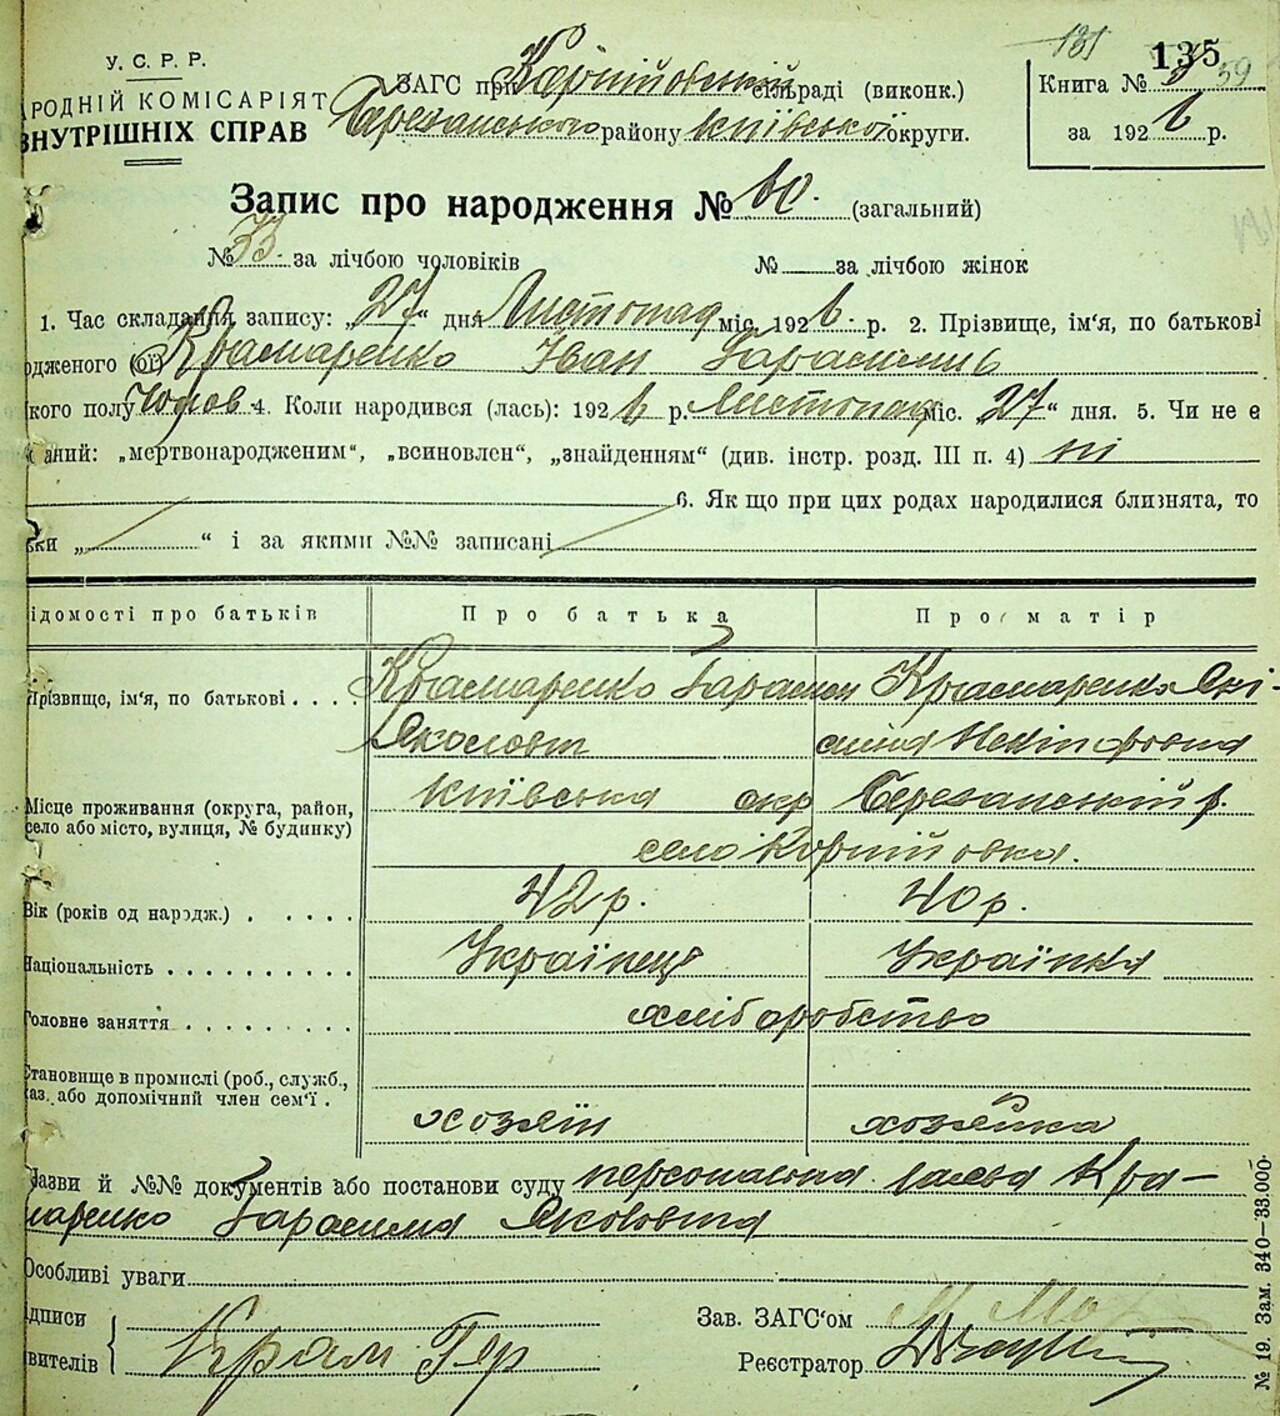 181 135
У. С. Р. Р.
РОДНІЙ КОМІСАРІЯТ
ВНУТРІШНІХ СПРАВ
ЗАГС при Корнійовській сільраді (виконк.)
Березанського району Київської округи.
Книга № 59
за 1926 р.
Запис про народження № 60. (загальний)
№ 33. за лічбою чоловіків № за лічбою жінок
1. Час складання запису: „27“ дня Листопад міс. 1926. р. 2. Прізвище, ім'я, по батькові
одженого (ої) Крамаренко Іван Гарасимів
кого полу Чолов. 4. Коли народився (лась): 1926 р. Листопад міс. „27“ дня. 5. Чи не є
аний: „мертвонародженим“, „всиновлен“, „знайденням“ (див. інстр. розд. III п. 4) ні
6. Як що при цих родах народилися близнята, то
ки „ “ і за якими №№ записані
ідомості про батьків Про батька Про матір
Прізвище, ім'я, по батькові . . . . Крамаренко Гарасим Крамаренко Окі-
Якович синія Некіпоровна
Місце проживання (округа, район, Київська окр Березанський р.
село або місто, вулиця, № будинку) село Корнійовка.
Вік (років од народж.) . . . . . 42 р. 40 р.
Національність . . . . . . . . . . Українець Українка
Головне заняття . . . . . . . . . хліборобство
Становище в промислі (роб., служб.,
аз. або допомічний член сем'ї . хозяїн хозяйка
Назви й №№ документів або постанови суду персональна заява Кра-
маренко Гарасима Якововича
Особливі уваги
ідписи Зав. ЗАГС'ом
вителів Крам Гер Реєстратор
№ 19. Зам. 340—33.000.